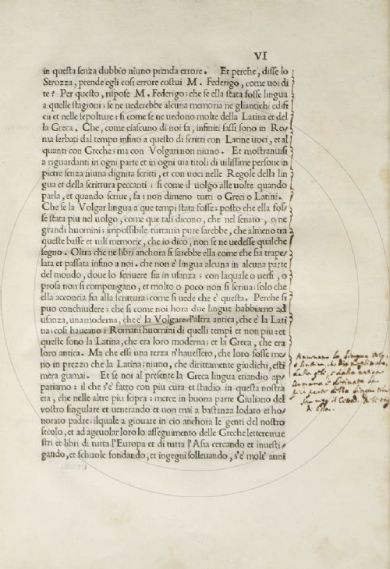 VI
in questa senza dubbio niuno prenda errore. Et perche, disse lo
Strozza, prende egli cosi errore costui M. Federigo, come uoi di
te? Per questo, rispose M. Federigo: che se ella stata fosse lingua
a quelle stagioni; se ne uederebbe alcuna memoria ne gliantichi edifi
cii et nelle sepolture: si come se ne uedono molte della Latina et del
la Greca. Che, come ciascuno di noi sa, infiniti sassi sono in Ro
ma serbati dal tempo infino a questo di scritti con Latine uoci, et al
quanti con Greche: ma con Volgari non niuno. Et mostransi
a riguardanti in ogni parte et in ogni uia titoli di uilissime persone in
pietre senza niuna dignita scritti, et con uoci nelle Regole della lin
gua et della scrittura peccanti: si come il uolgo alle uolte quando
parla, et quando scriue, fa: non dimeno tutti o Greci o Latini.
Che se la Volgar lingua a que tempi stata fosse: posto che ella fos
se stata piu nel uolgo, come que tali dicono, che nel senato, o ne
grandi huomini: impossibile tuttauia pure sarebbe, che almeno tra
queste basse et uili memorie, che io dico, non se ne uedesse qualche
segno. Oltra che ne libri anchora si sarebbe ella come che sia trape
lata et passata infino a noi. che non e lingua alcuna in alcuna parte
del mondo, doue lo scriuere sia in usanza: con laquale o uersi, o
prosa non si compongano, et molto o poco non si scriua: solo che
ella acconcia sia alla scrittura: come si uede che e questa. Perche si
puo conchiudere; che si come noi hora due lingue habbiamo ad
usanza, una moderna, che è la Volgare: l'altra antica, che è la Lati
na: cosi haueano i Romani huomini di quelli tempi et non piu: et
queste sono la Latina, che era loro moderna: et la Greca, che era
loro antica. Ma che essi una terza n'hauessero, che loro fosse me
no in prezzo che la Latina: niuno, che dirittamente giudichi, esti
mera giamai. Et se noi al presente la Greca lingua etiandio ap
pariamo: il che s'è fatto con piu cura et studio in questa nostra
eta, che nelle altre piu sopra: merce in buona parte Giuliano del
vostro singulare et uenerando et non mai a bastanza lodato et ho
norato padre: ilquale a giouare in cio anchora le genti del nostro
secolo, et ad ageuolar loro lo asseguimento delle Greche lettere mae
stri et libri di tutta l'Europa et di tutta l'Asia cercando et inuesti
gando, et schuole fondando, et ingegni solleuando, s'è molt' anni